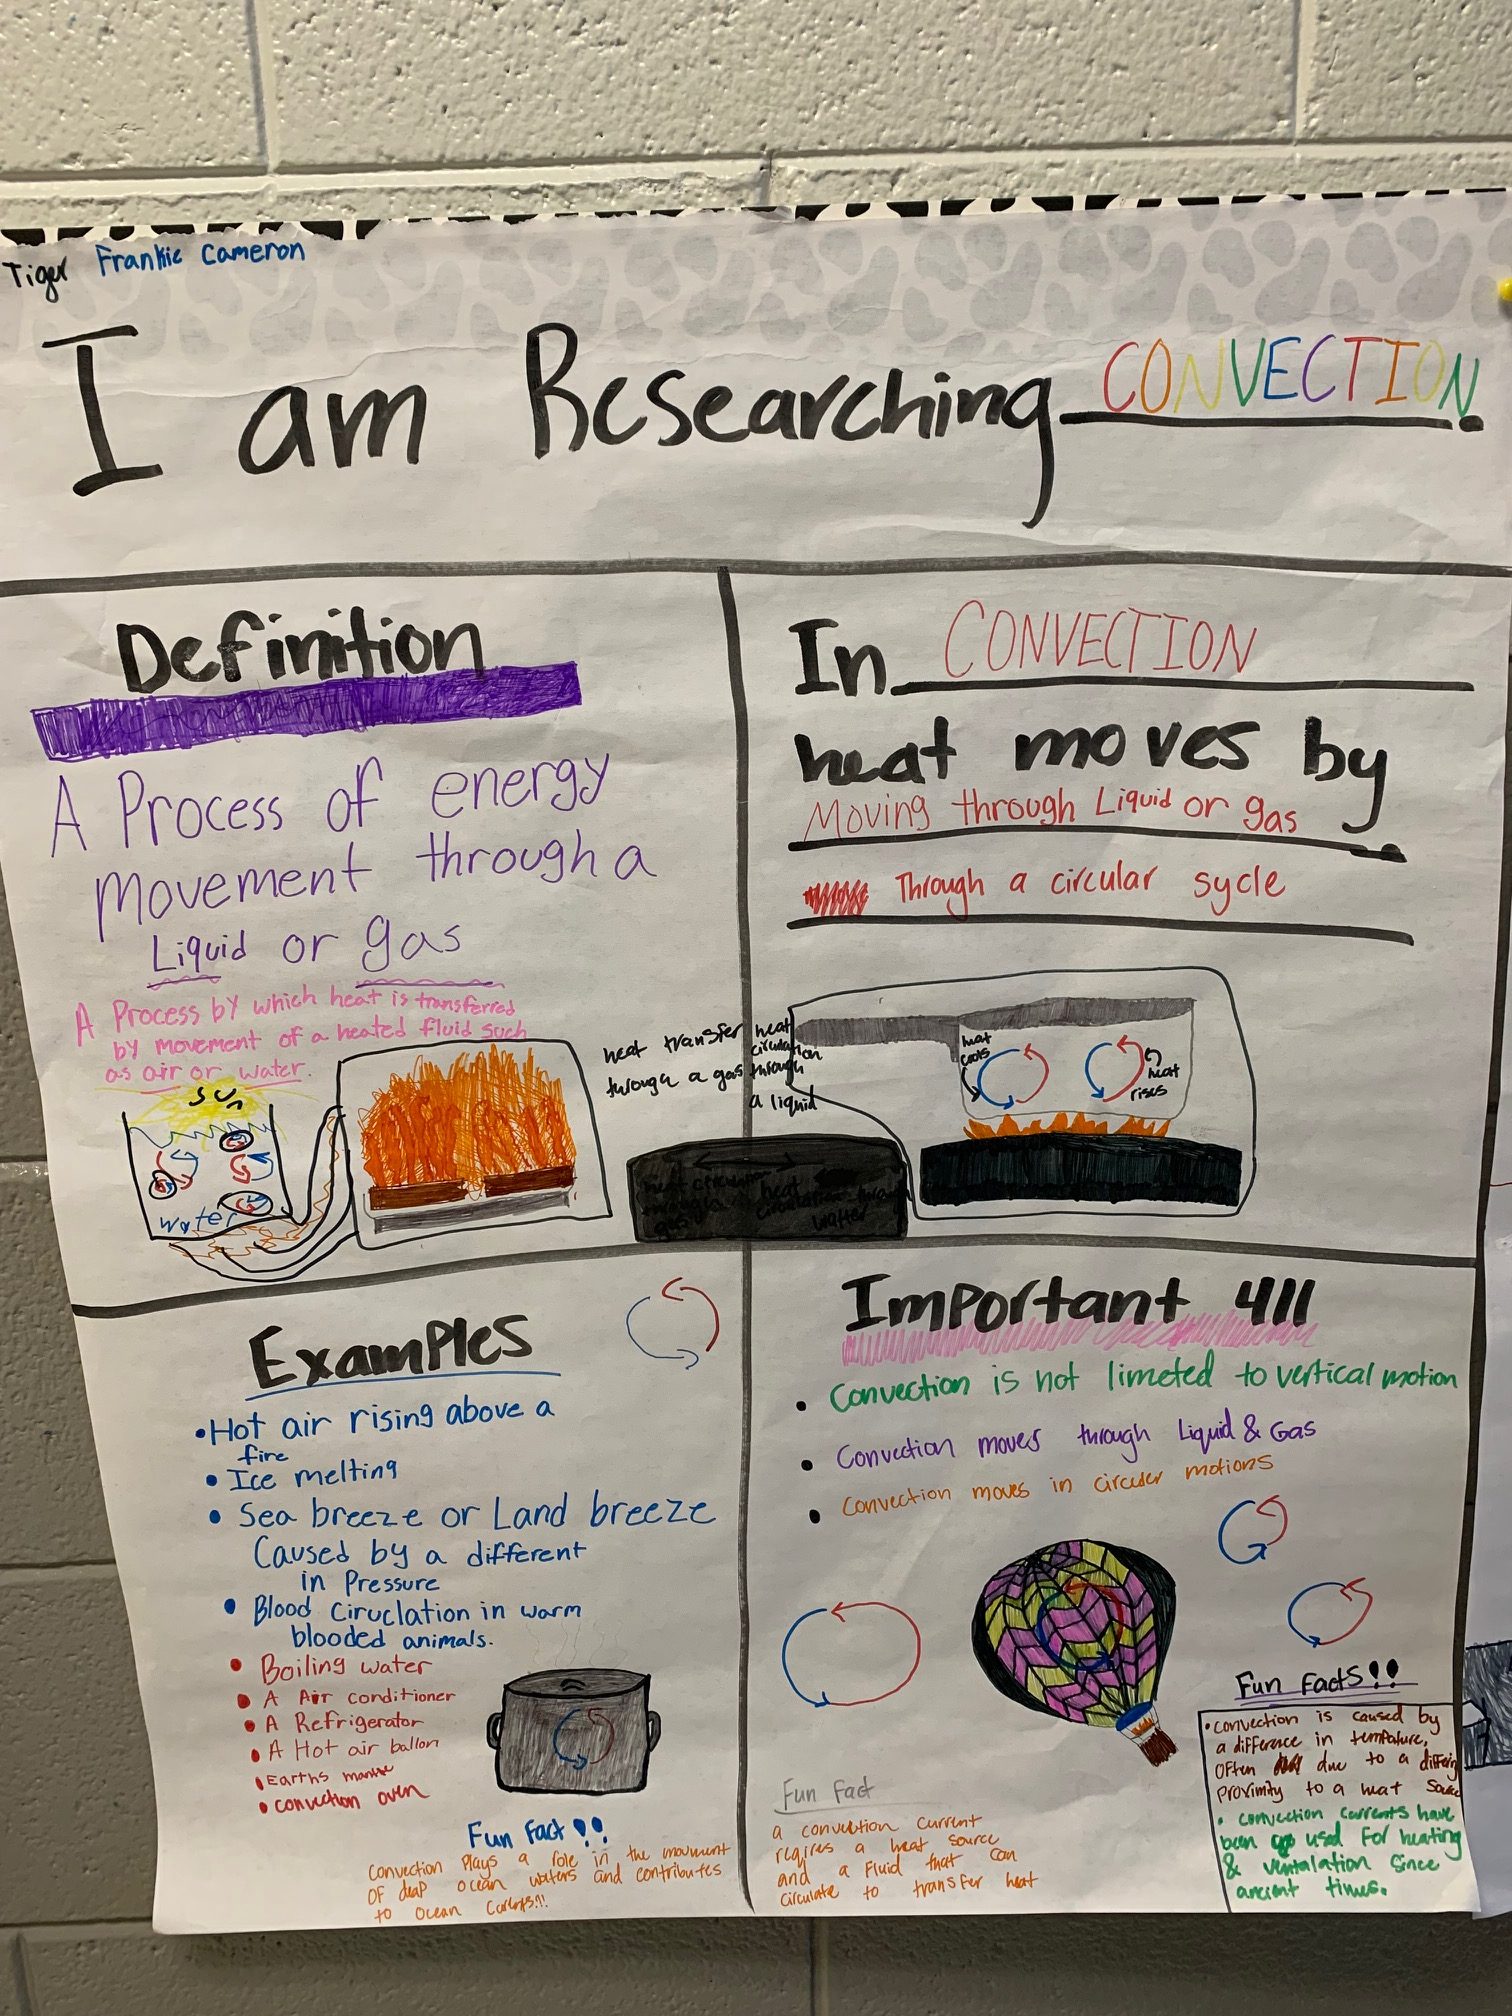 Tiger Frankie Cameron
I am Researching CONVECTION.
Definition
A Process of energy
movement through a
Liquid or gas
A Process by which heat is transferred
by movement of a heated fluid such
as air or water.
sun
water
heat transfer
through a gas
heat
circulation
through
a liquid
In CONVECTION
heat moves by
Moving through Liquid or gas
Through a circular sycle
heat
cools
heat
rises
Examples
•Hot air rising above a
fire
• Ice melting
• Sea breeze or Land breeze
Caused by a different
in Pressure
• Blood Ciruclation in warm
blooded animals.
• Boiling water
• A Air conditioner
• A Refrigerator
• A Hot air ballon
• Earths mantle
• convection oven
Fun Fact !!
Convection Plays a role in the movment
OF deap ocean waters and contributes
to ocean
Important 411
• Convection is not limeted to vertical motion
• Convection moves through Liquid & Gas
• Convection moves in circular motions
Fun Fact
a convection current
reqires a heat source
and a Fluid that can
Circulate to transfer heat
Fun Facts!!
• Convection is caused by
a difference in tempature,
Often due to a differing
Proximity to a heat source
• Convection currents have
been used For heating
& ventalation since
ancient times.